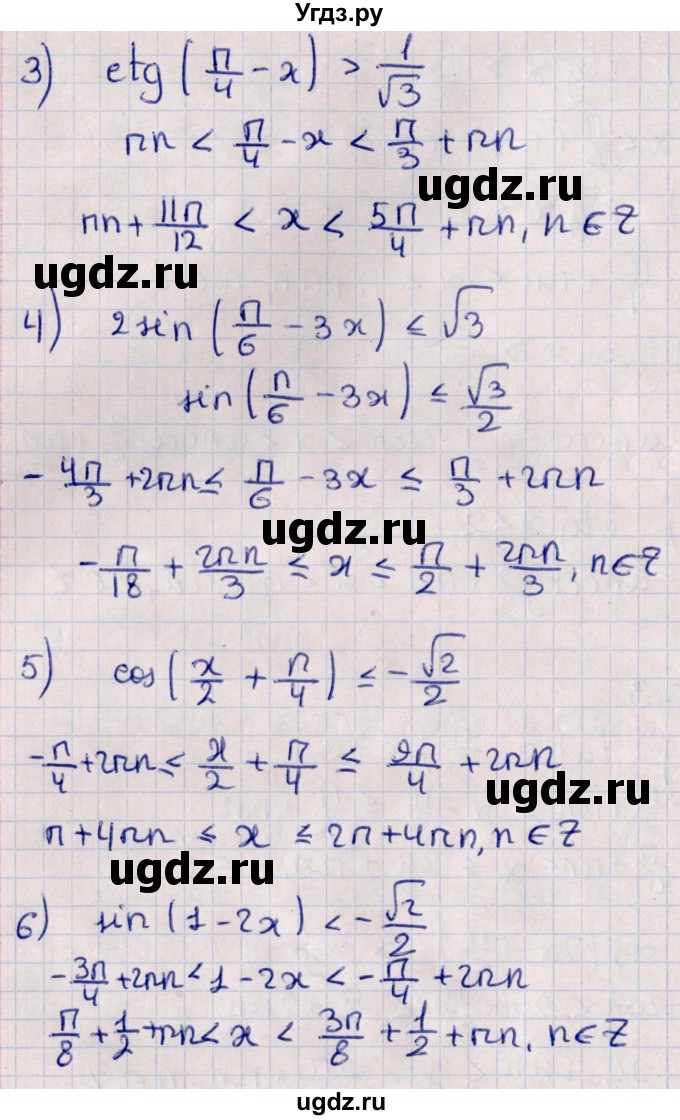 Угдз.ру
3) ctg(π/4 - x) > 1/√3
πn < π/4 - x < π/3 + πn
ugdz.ru
πn + 11π/12 < x < 5π/4 + πn, n ∈ Z
ugdz.ru
4) 2sin(π/6 - 3x) ≤ √3
sin(π/6 - 3x) ≤ √3/2
-4π/3 + 2πn ≤ π/6 - 3x ≤ π/3 + 2πn
ugdz.ru
-π/18 + 2πn/3 ≤ x ≤ π/2 + 2πn/3, n ∈ Z
5) cos(x/2 + π/4) ≤ -√2/2
-π/4 + 2πn ≤ x/2 + π/4 ≤ 9π/4 + 2πn
ugdz.ru
π + 4πn ≤ x ≤ 2π + 4πn, n ∈ Z
ugdz.ru
6) sin(1 - 2x) < -√2/2
-3π/4 + 2πn < 1 - 2x < -π/4 + 2πn
ugdz.ru
π/8 + 1/2 + πn < x < 3π/8 + 1/2 + πn, n ∈ Z
ugdz.ru